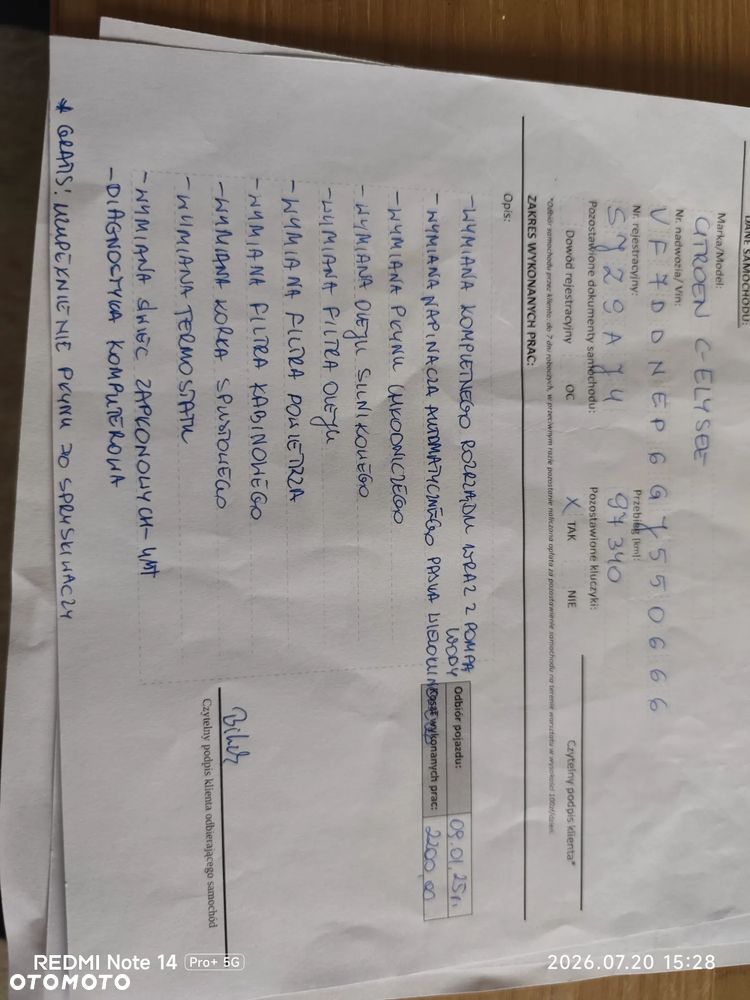 DANE SAMOCHODU:
Marka/Model:
CITROEN C-ELYSEE
Nr. nadwozia/ Vin:
VF7DDNEP6GJ550666
Nr. rejestracyjny:
SJ29AJ4
Przebieg [km]:
97340
Pozostawione dokumenty samochodu:
Pozostawione kluczyki:
Dowód rejestracyjny OC
X TAK NIE
Czytelny podpis klienta*
*Odbiór samochodu przez klienta, do 7 dni roboczych, w przeciwnym razie pozostanie naliczona opłata za pozostawienie samochodu na terenie warsztatu w wysokości 100zł/dzień.
ZAKRES WYKONANYCH PRAC:
Opis:
- WYMIANA KOMPLETNEGO ROZRZĄDU WRAZ Z POMPĄ WODY
- WYMIANA NAPINACZA AUTOMATYCZNEGO PASKA
- WYMIANA PŁYNU CHŁODNICZEGO
- WYMIANA OLEJU SILNIKOWEGO
- WYMIANA FILTRA OLEJU
- WYMIANA FILTRA POWIETRZA
- WYMIANA FILTRA KABINOWEGO
- WYMIANA KORKA SPUSTOWEGO
- WYMIANA TERMOSTATU
- WYMIANA ŚWIEC ZAPŁONOWYCH - 4szt
- DIAGNOSTYKA KOMPUTEROWA
* GRATIS! UZUPEŁNIENIE PŁYNU DO SPRYSKIWACZY
Odbiór pojazdu: 09.01.25r.
Koszt wykonanych prac: 2200,00
Czytelny podpis klienta odbierającego samochód
REDMI Note 14 Pro+ 5G
2026.07.20 15:28
OTOMOTO